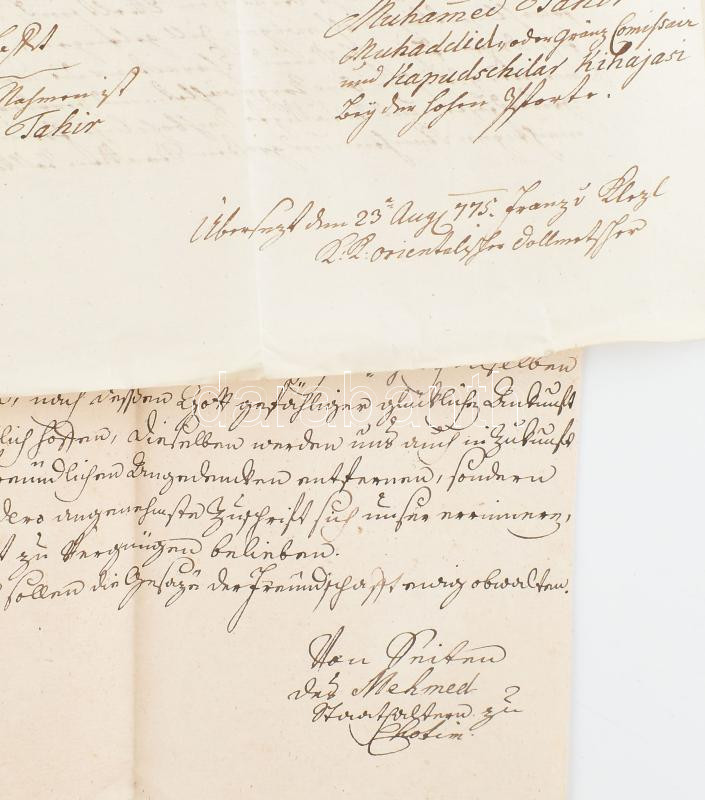 Nahmen ist
Tahir
Muhamed Tahir
Muhaddid, oder Gränz Comissair
und Kapudschilar Kihajasi
Beÿ der hohen Pforte.
Übersezt den 23ⁿ Aug 775. Franz v Klezl
K: K: orientalischer Dollmetscher
darabanth
selben
, nach dessen Gott gefälliger glücklicher Ankunft
lich hoffen, dieselben werden uns auch in Zukunft
freündlichen Angedencken entfernen, sondern
dero angenehmste Zuschrift sich unser errinnern,
zu Vergnügen belieben.
sollen die Gesäze der Freündschafft ewig obwalten.
Von Seiten
des Mehmed
Staathaltern zu
Chotim.